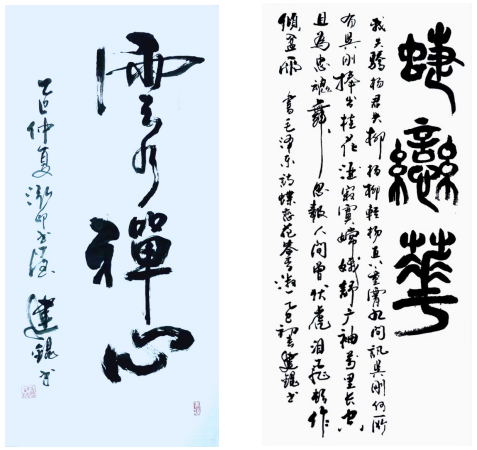 雲水禪心
乙巳仲夏
建錕书
蝶戀華
我失驕楊君失柳 楊柳輕揚直上重霄九問訊吳剛何所
有吳剛捧出桂花酒寂寞嫦娥舒广袖萬里长空
且為忠魂舞 忽報人间曾伏虎泪飛頓作
傾盆雨 書毛泽东诗蝶恋花答李淑一 乙巳初夏建錕书